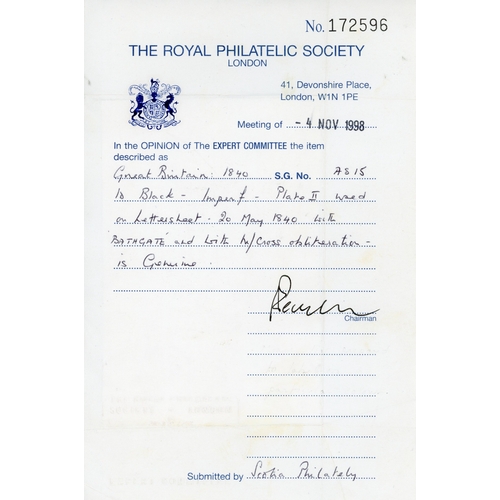 No. 172596
THE ROYAL PHILATELIC SOCIETY
LONDON
41, Devonshire Place,
London, W1N 1PE
Meeting of - 4 NOV 1998
In the OPINION of The EXPERT COMMITTEE the item
described as
Great Britain: 1840 S.G. No. AS15
1d Black - Imperf - Plate II used
on Lettersheet - 20 May 1840 with
BATHGATE and with M/Cross obliteration -
is Genuine.
Chairman
Submitted by Scotia Philately